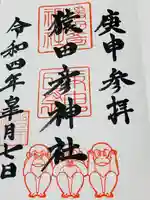 庚申参拝
猿田彦神社
令和四年皐月七日